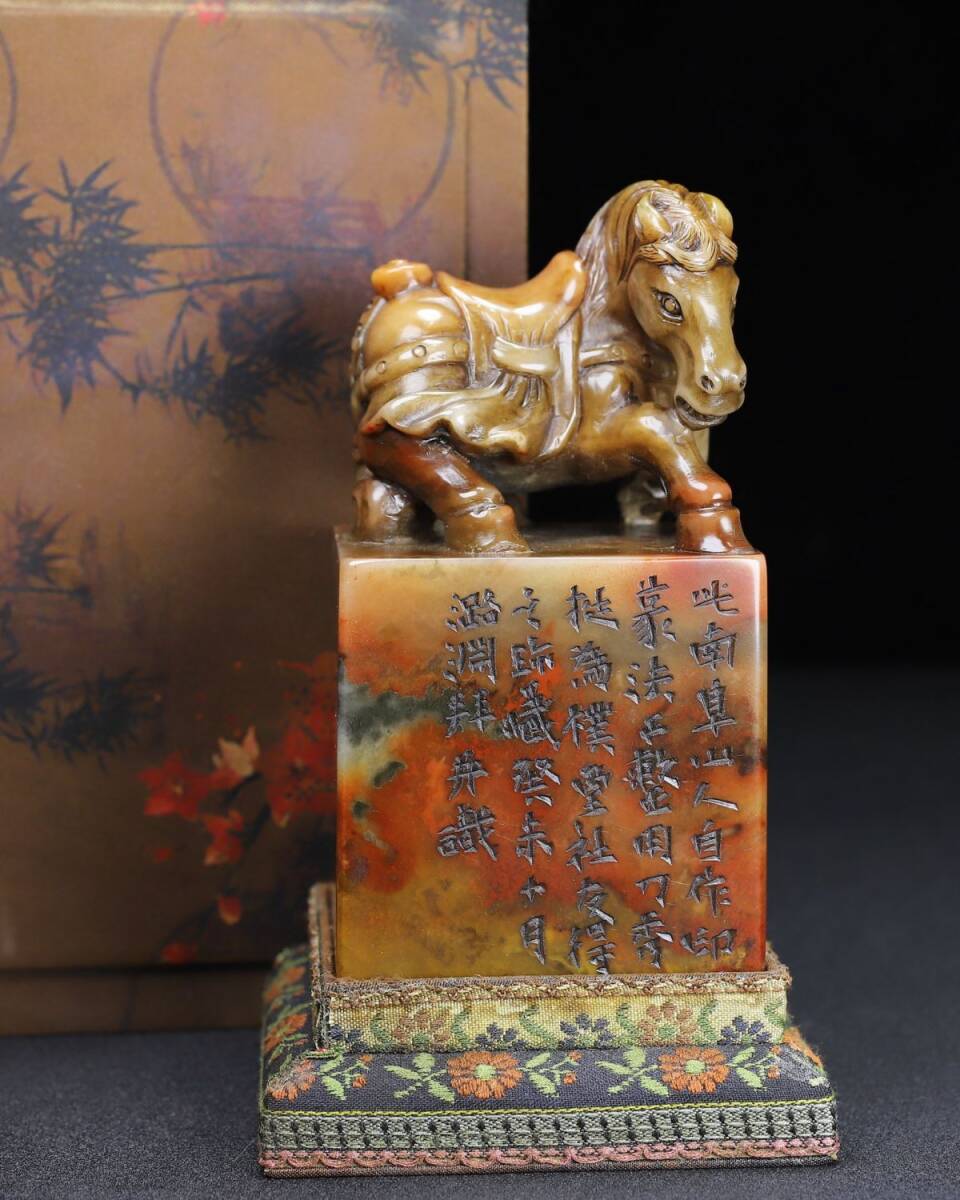 此南阜山人自作印
篆法工整用刀秀
挺為樸堂社友得
之昤藏癸未十月
潞淵拜丹識